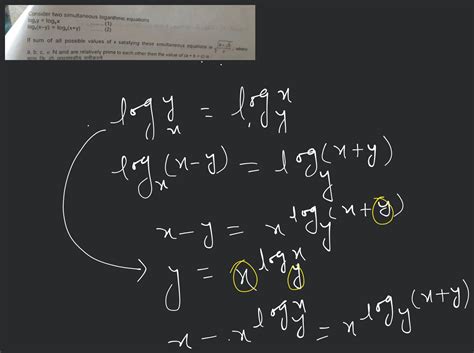 Consider two simultaneous logarithmic equations
log_x y = log_y x ........ (1)
log_x(x−y) = log_y(x+y) ........ (2)
If sum of all possible values of x satisfying these simultaneous equations is where
a, b, c, ∈ N and are relatively prime to each other then the value of (a + b + c) is
log_x y = log_y x
log_x (x−y) = log_y (x+y)
x−y = x^{log_y (x+y)}
y = x^{log_y x}
x − x^{log_y x} = x^{log_y (x+y)}